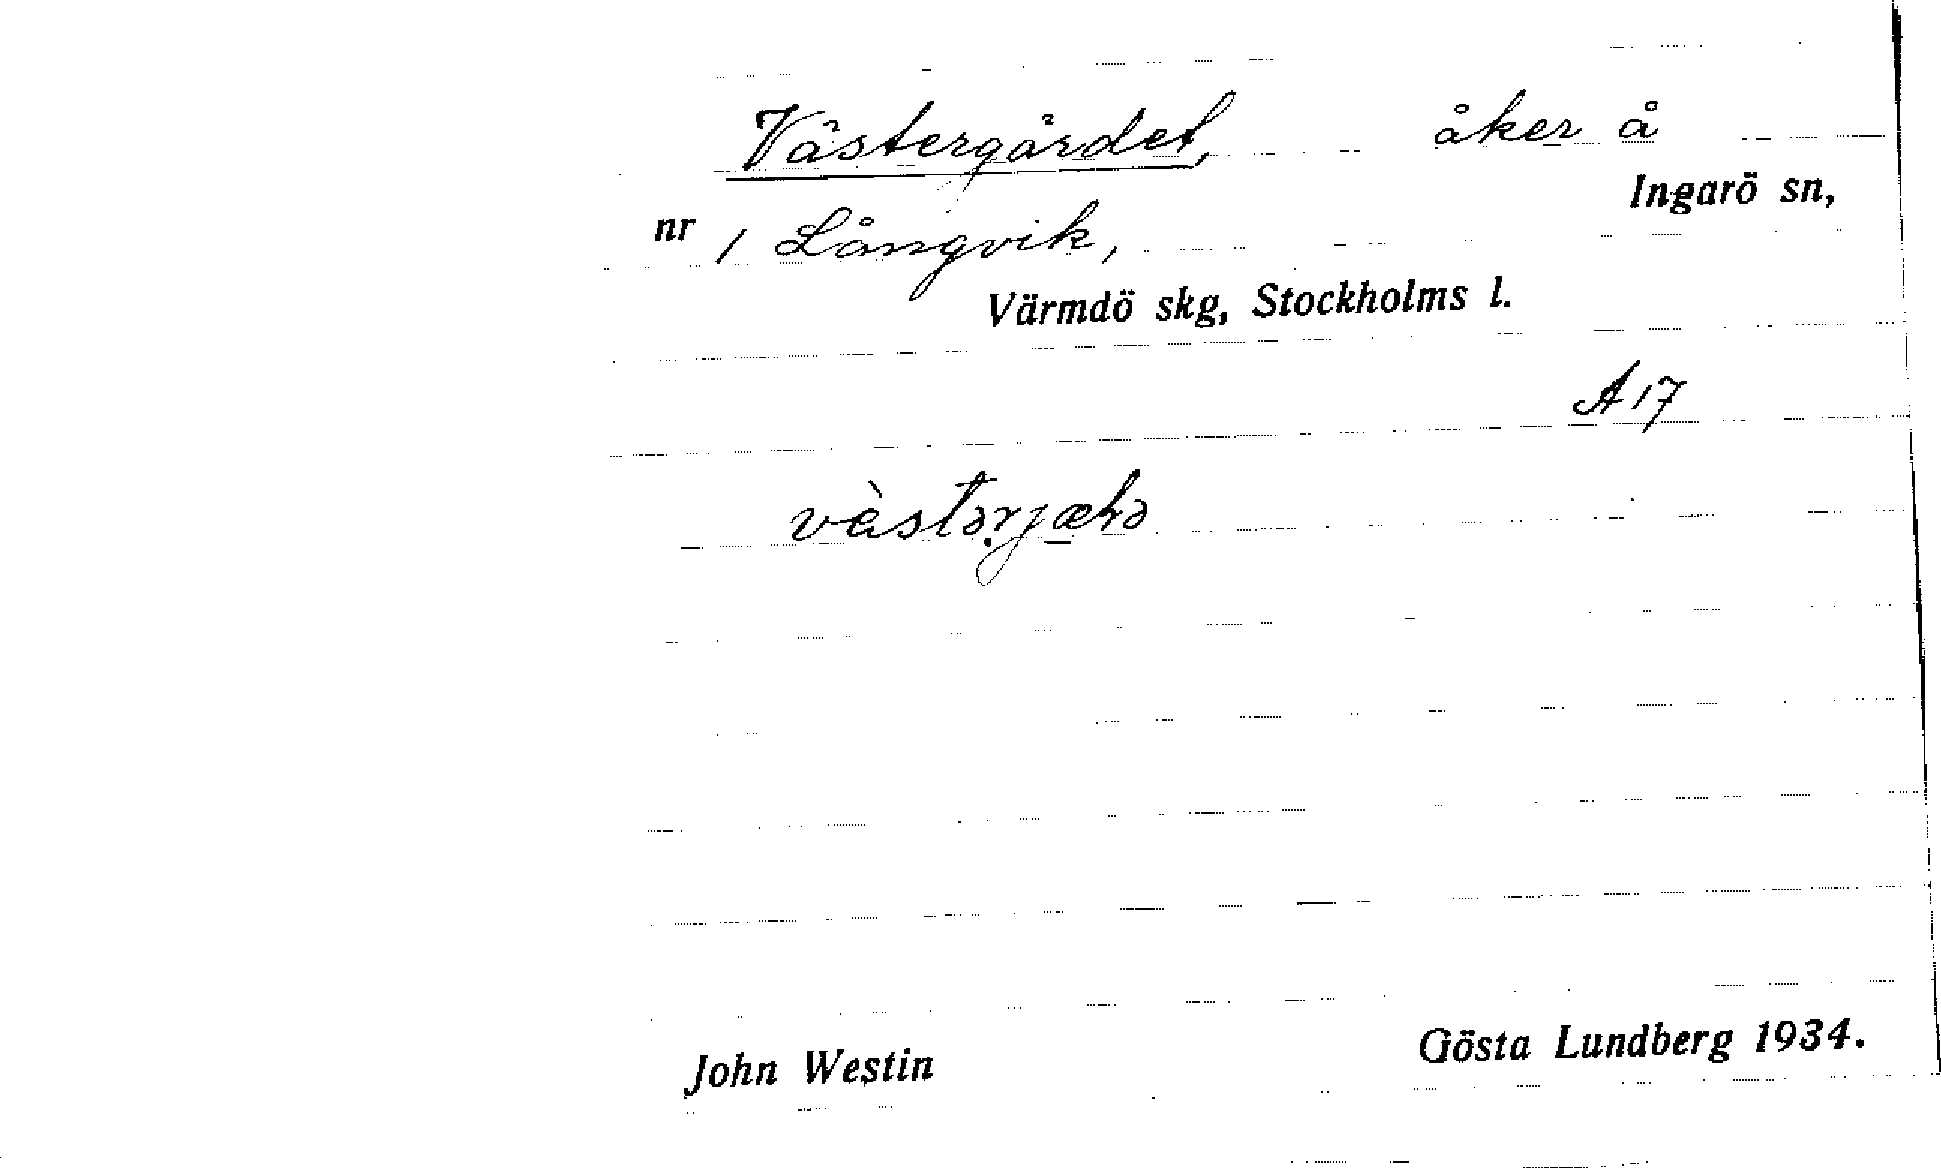 Västergärdet, åker å
Ingarö sn,
nr 1 Långvik,
Värmdö skg, Stockholms l.
A 17
John Westin Gösta Lundberg 1934.